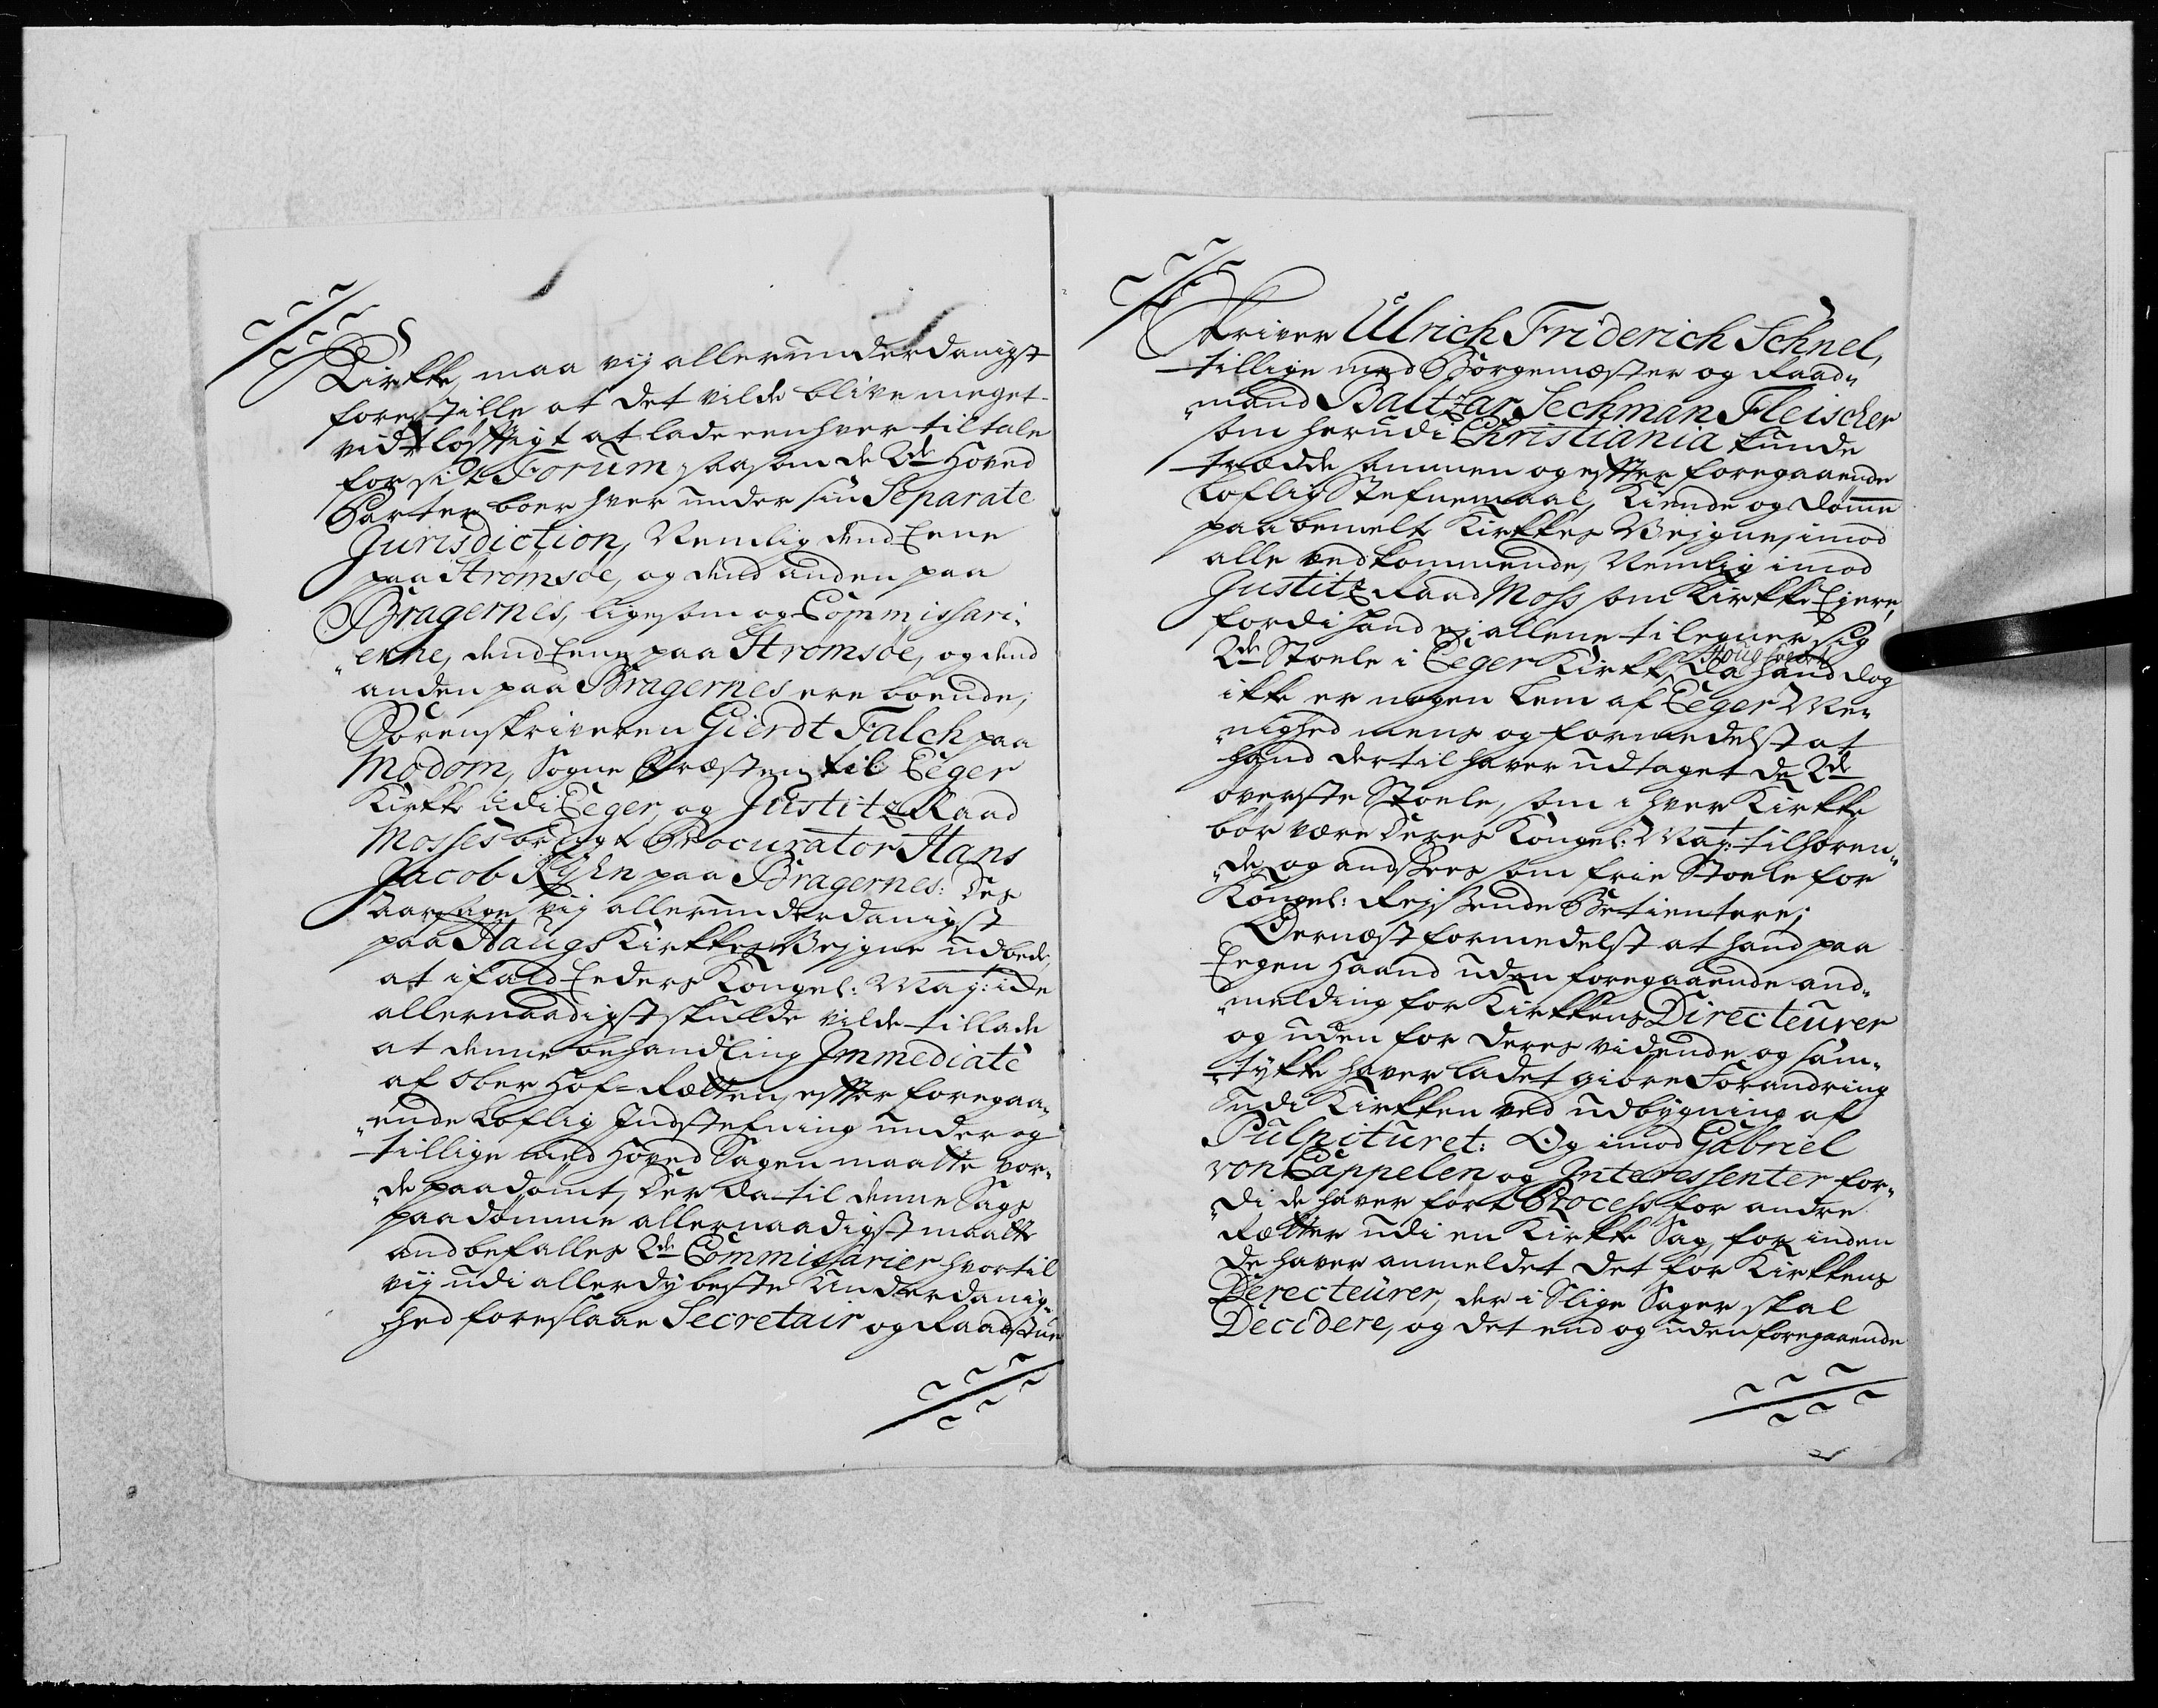 Kirkke, maa vij allerunderdanigst
forestille at det vilde blive meget
vidtløfftigt at lade eenhver tiltale
for sit Forum, saasom de 2de Hoved
Parter boer hver under sin Separate
Jurisdiction, Nemlig dend Eene
paa Strømsøe, og dend anden paa
Bragernes, ligesom og Commissari„
„erne, dend Eene paa Strømsøe, og dend
anden paa Bragernes ere boende;
Sorenskriveren Gierdt Falch paa
Modom, Sogne Præsten til Eeger
Kirkke udi Eeger, og Justitz Raad
Mosses Procurator Hans
Jacob Kyhn paa Bragernes: Des
Aarsage vij allerunderdanigst
paa Haugs Kirkkes Vejgne udbede,
at ifald Eeders Kongel: May:t icke
allernaadigst skulde vilde tillade
at denne behandling Immediate
af Ober Hof-Retten, effter foregaa„
„ende Lovlig Indstefning under og
tillige med Hoved Sagen maatte vor„
„de paadømt, Der da til denne Sags
paadømme allernaadigst maatte
andbefalles 2de Commissarier hvortil
vij udi allerdybeste Underdanig„
„hed foreslaae Secretair og Raadstue
Skriver Ulrich Friderich Schnel,
tillige med Borgemæster og Raad„
„mand Baltzar Sechman Fleischer
som herudi Christiania kunde
trædde sammen og effter foregaaende
Lovlig Stefnemaal, Kiende og dømme
paa bemelte Kirkkes Vejgne, imod
alle vedkommende, Nemlig imod
Justitz Raad Moss som Kirkke Ejere,
fordi hand ej allene tilegner sig
2de Stoele i Eeger Kirkke, da hand dog
ikke er nogen Lem af Eeger Me„
„nighed mens og formedelst at
hand dertil haver udtaget de 2de
øverste Stoele, som i hver Kirkke
bør være Deres Kongel: May:t tilhøren„
„de, og andsees som frie Stoele for
Kongel: Rejsende Betientere;
Dernæst formedelst at hand paa
Eegen Haand uden foregaaende and„
„melding for Kirkkens Directeurer
og uden for deres vidende og sam„
„tykke haver ladet giøre Forandring
udi Kirkken ved udbygning af
Pulpituret: Og imod Gabriel
von Cappelen og Interessenter for„
„di de haver ført Process for andre
Retter udi en Kirkke Sag, for inden
de haver anmeldet det for Kirkkens
Derecteurer, der i Slige Sager skal
Decidere, og det end og uden foregaaende